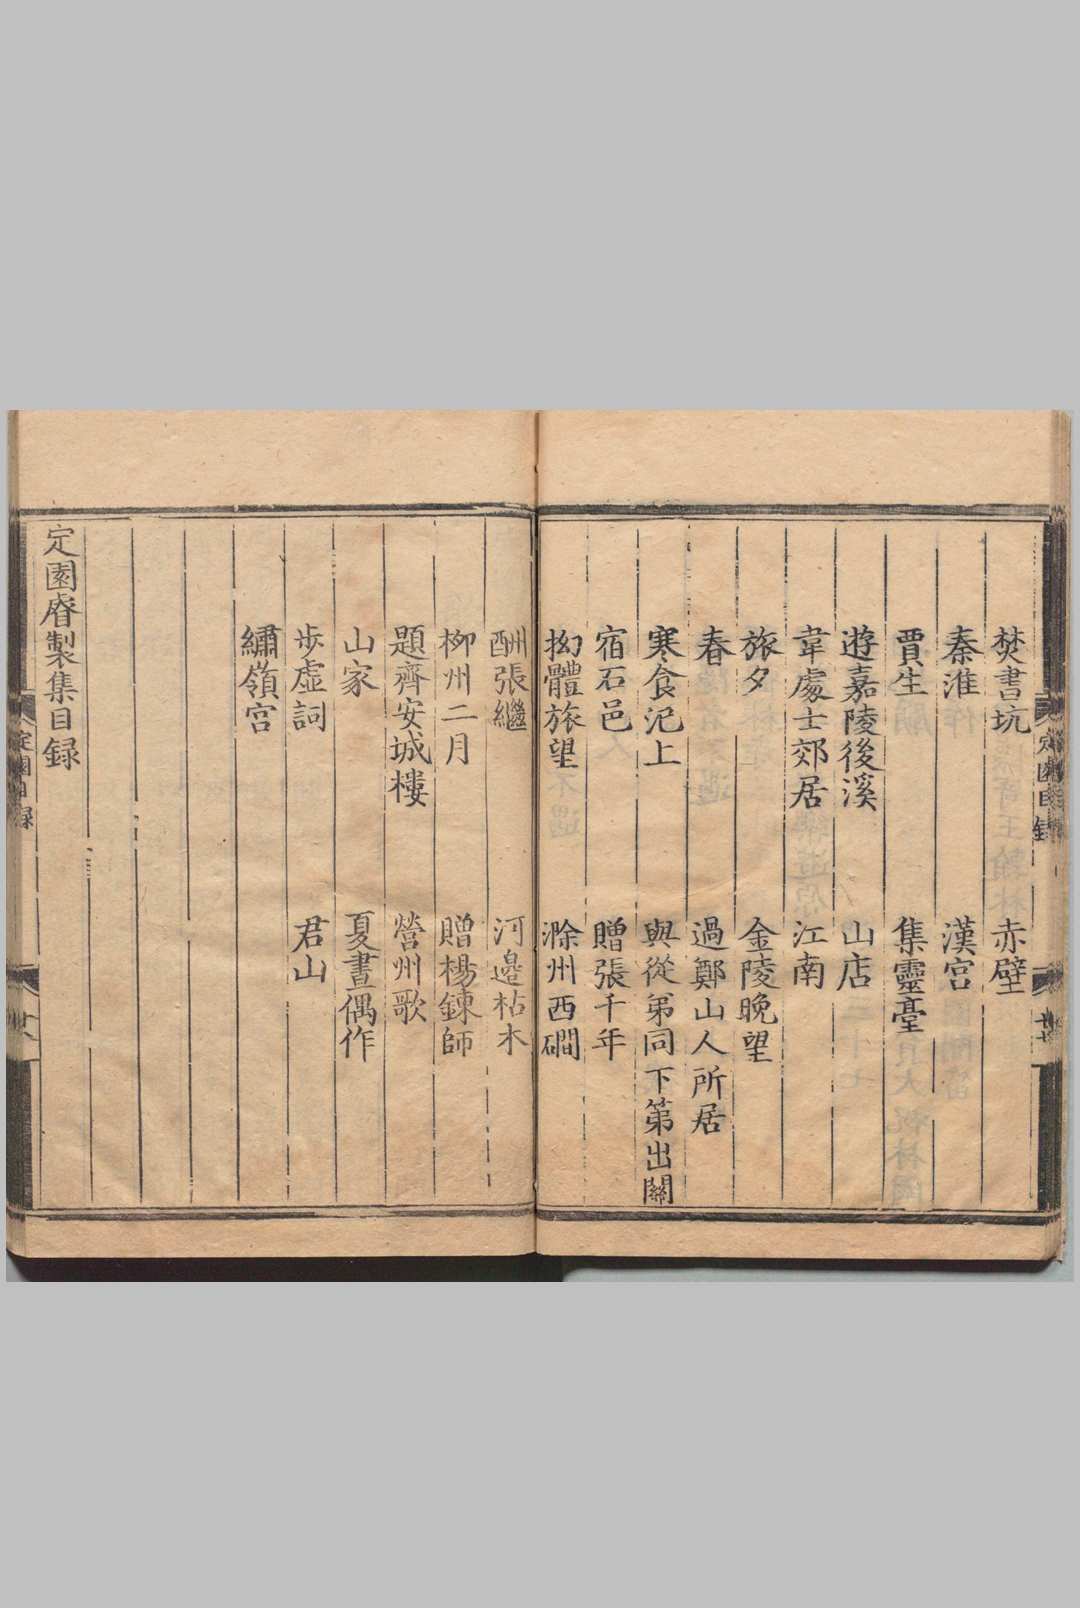 焚書坑　赤壁
秦淮　漢宮
賈生　集靈臺
遊嘉陵後溪　山店
韋處士郊居　江南
旅夕　金陵晚望
春　過鄭山人所居
寒食汜上　與從弟同下第出關
宿石邑　贈張千年
拗體旅望　滁州西磵
酬張繼　河邊枯木
柳州二月　贈楊鍊師
題齊安城樓　營州歌
山家　夏晝偶作
步虛詞　君山
繡嶺宮
定園睿製集目録